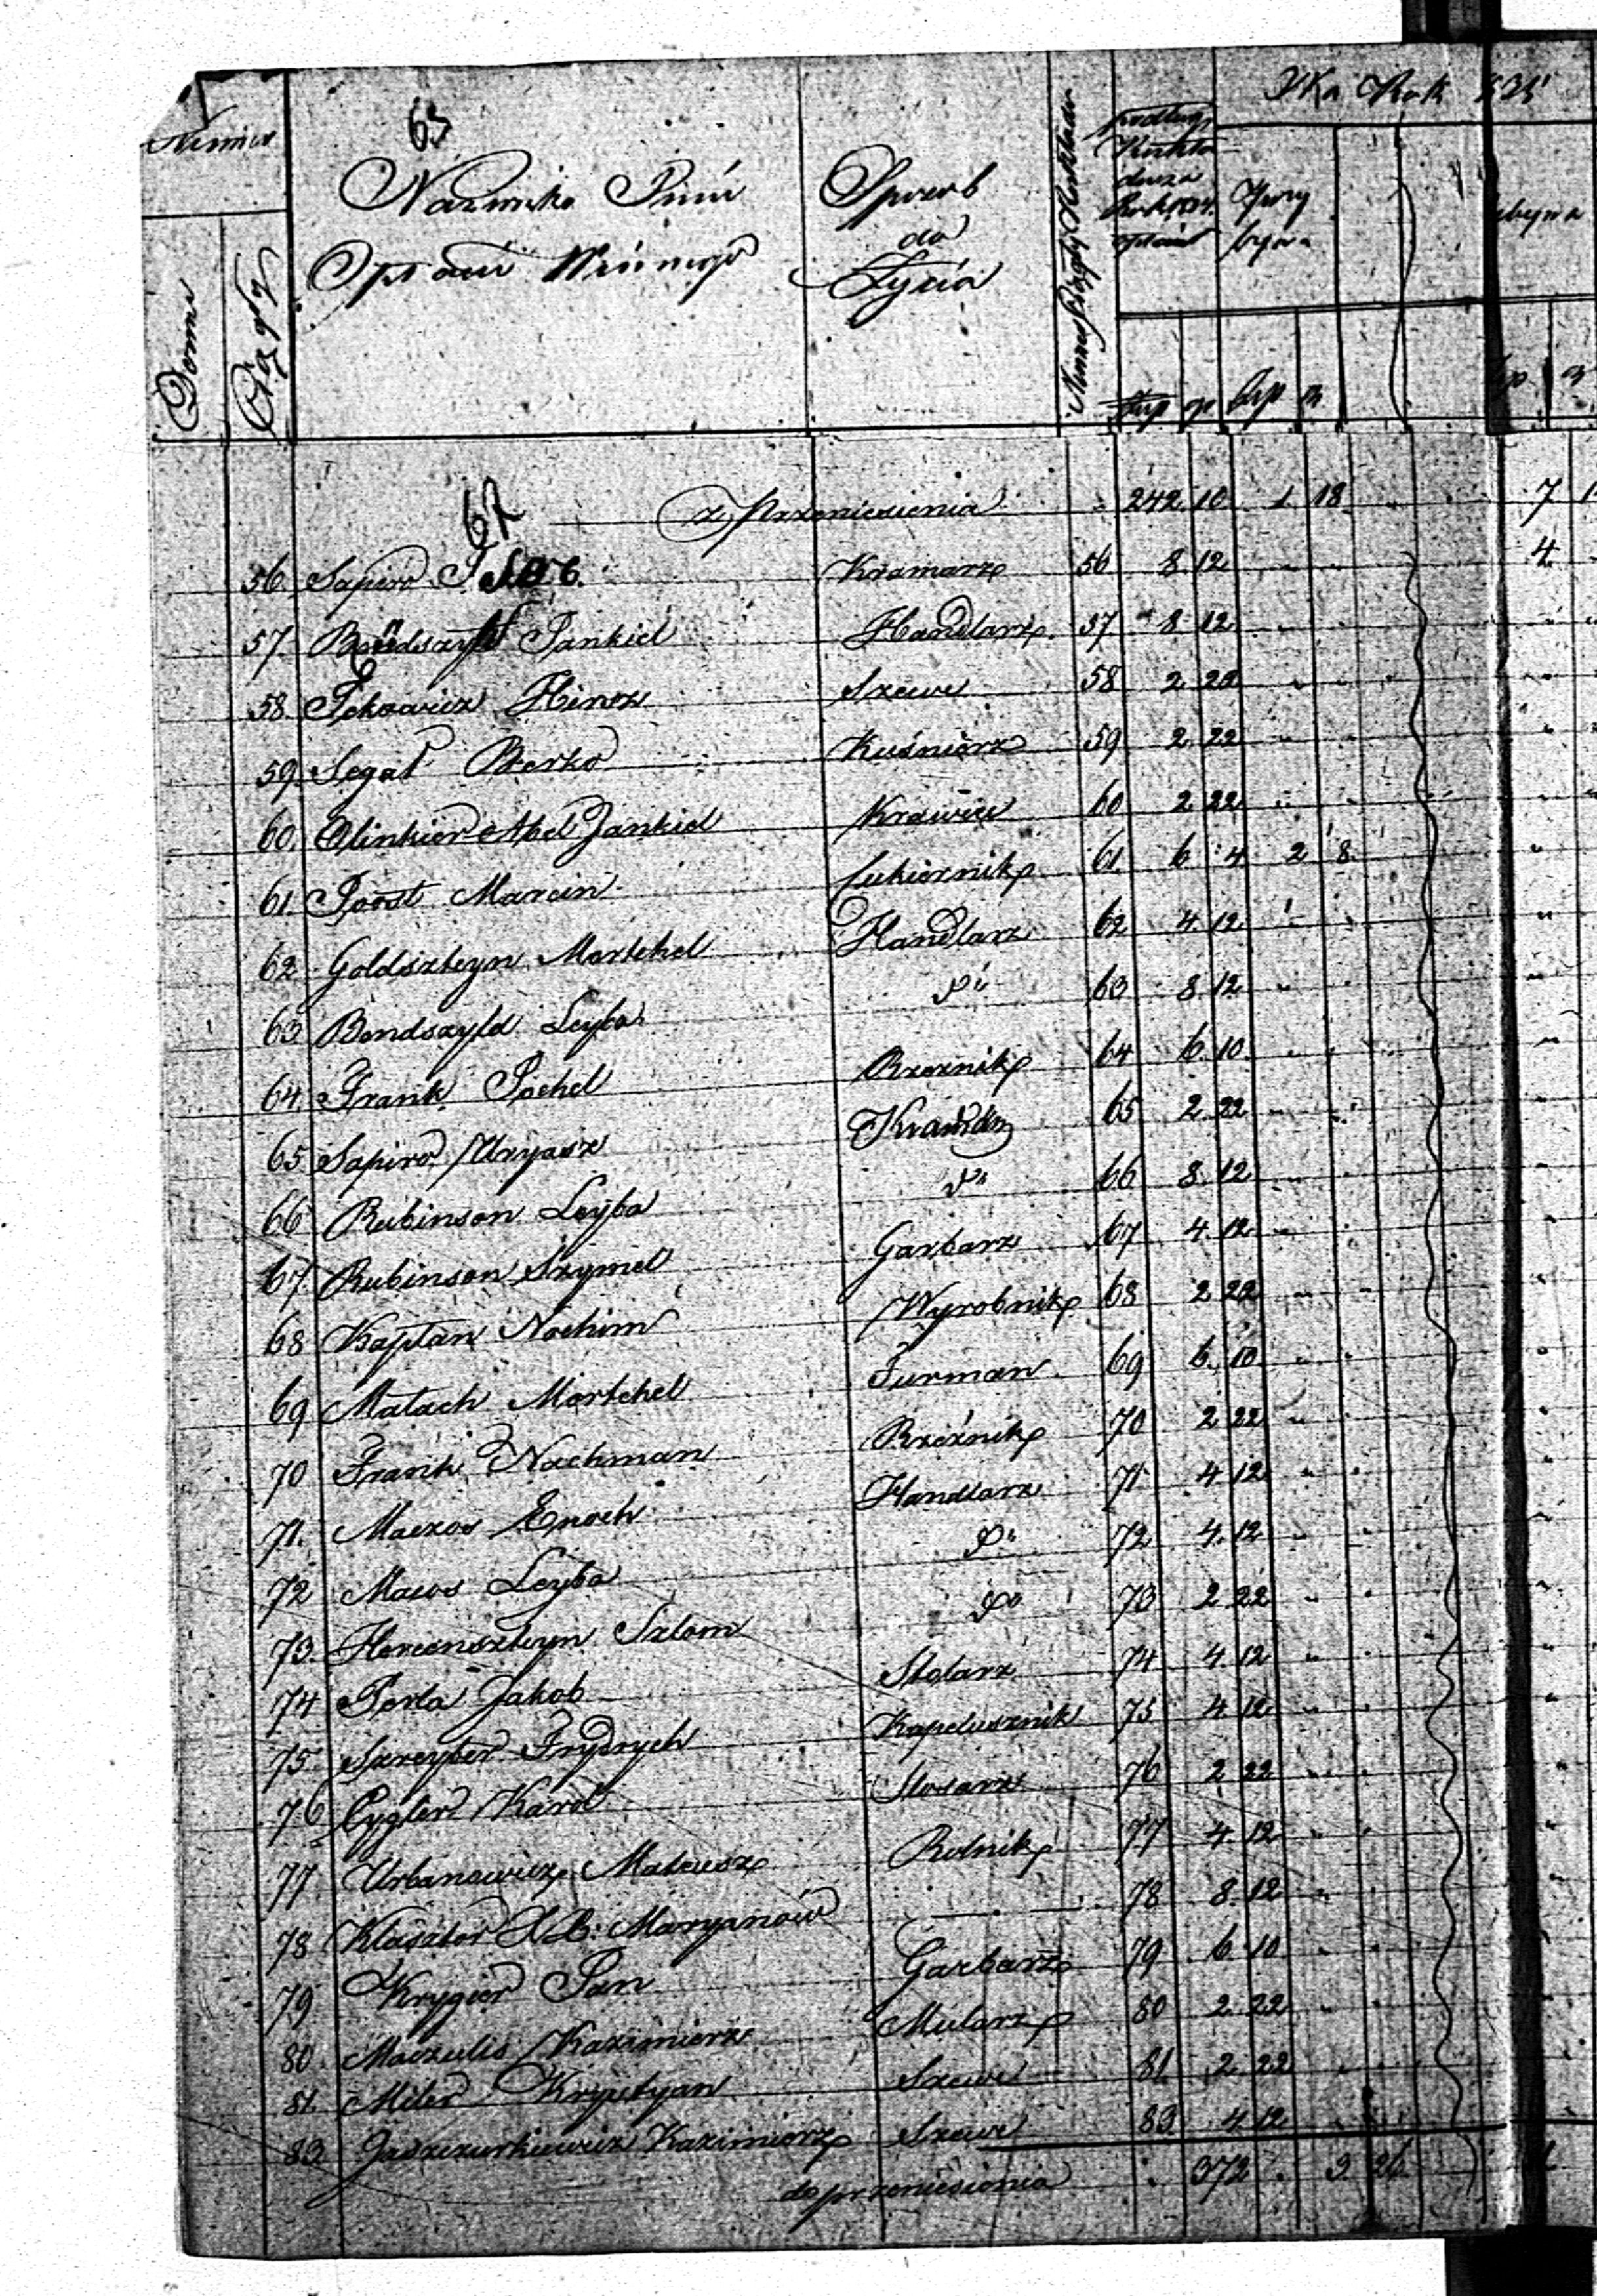 Numer
63
Nazwisko Imie
Opłacaiącego
Sposób
do
Życia
podług
Kontra
Roku 1834
Przy
bywa
Na Rok 1835
ubywa
Domu
złp gr złp gr
67
z Przeniesienia 242 10 1 18 7
56 Sapiro Kramarz 56 8 12 4
57 Jankiel Handlarz 57 8 12
58 Szewc 58 2 22
59 Segal Berko Kuśnierz 59 2 22
60 Olinkier Abel Jankiel Krawiec 60 2 22
61 Joost Marcin Cukiernik 61 6 4 2 8
62 Goldszteyn Mortchel Handlarz 62 4 12
63 Bondszyld Leyba do 63 8 12
64 Frank Jochel Rzeznik 64 6 10
65 Sapiro Uryasz 65 2 22
66 Rubinson Leyba do 66 8 12
67 Rubinson Szymel Garbarz 67 4 12
68 Kapłan Nochim Wyrobnik 68 2 22
69 Małach Mortchel Furman 69 6 10
70 Frank Nachman Rzeźnik 70 2 22
71. Maczos Enoch Handlarz 71 4 12
72 Macos Leyba do 72 4 12
73. Hercenszteyn Szlom do 73 2 22
74 Perla Jakob Stolarz 74 4 12
75. Szreyber Frydrych Kapelusznik 75 4 12
76 Cygler Karol Slosarz 76 2 22
77 Urbanowicz Mateusz Rolnik 77 4 12
78 Klasztor X.B. Maryanów 78 8 12
79 Krygier Jan Garbarz 79 6 10
80 Maczulis Kazimierz Mularz 80 2 22
81. Miler Krystyan Szewc 81. 2 22
83 Kazimierz Szewc 83 4 12
do przeniesienia 372 3 26